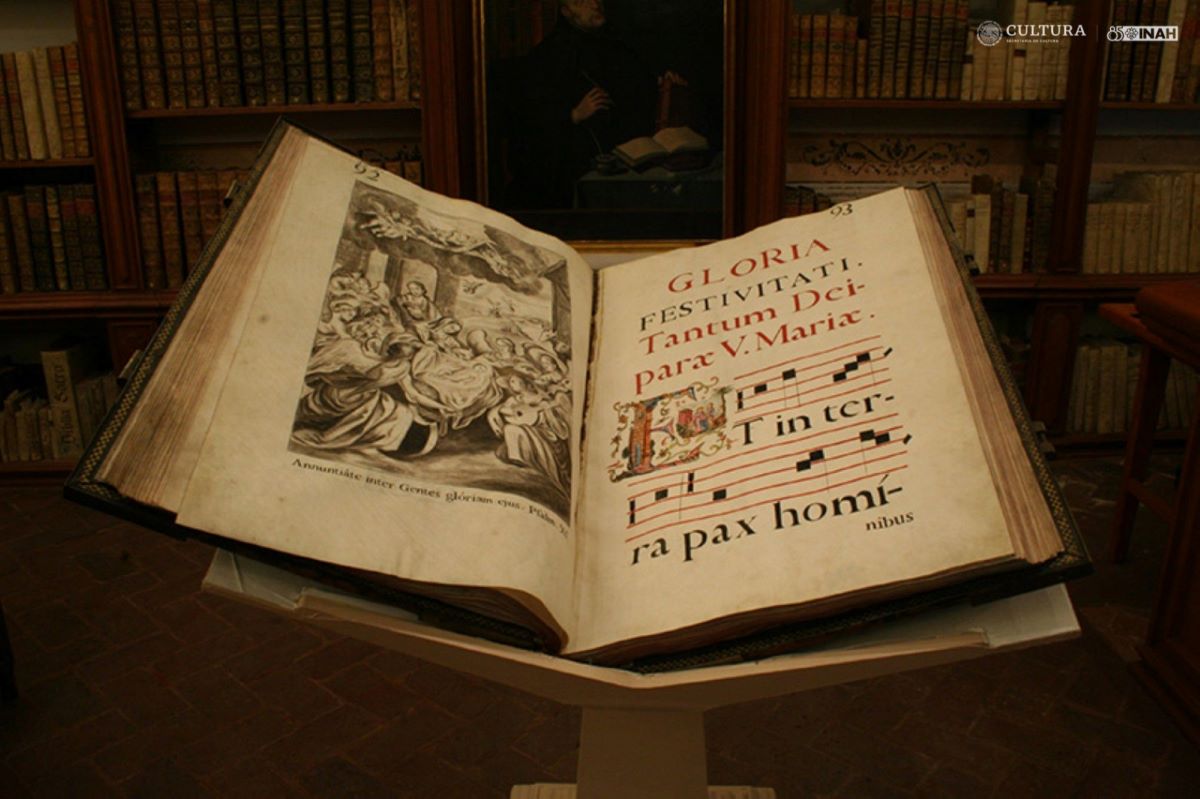 CULTURA
SECRETARÍA DE CULTURA
85 INAH
92
Annuntiáte inter Gentes glóriam ejus. Psalm.
93
GLORIA
FESTIVITATI.
Tantum Dei-
paræ V. Mariæ.
ET in ter-
ra pax homí-
nibus